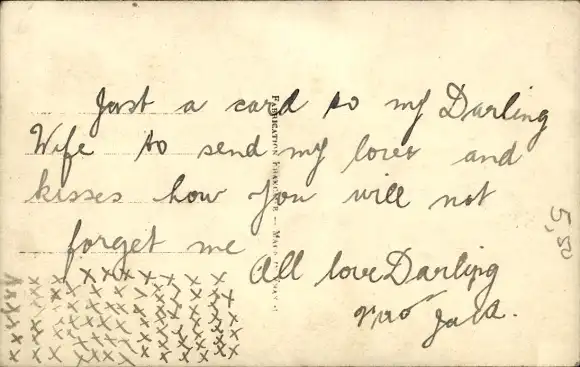 Just a card to my Darling
Wife to send my loves and
kisses how you will not
forget me
All love Darling
Jack.
FABRICATION FRANÇAISE
5,50
x x x x x x x x x x
x x x x x x x x x x
x x x x x x x x x x
x x x x x x x x x x
x x x x x x x x x x
x x x x x x x x x x